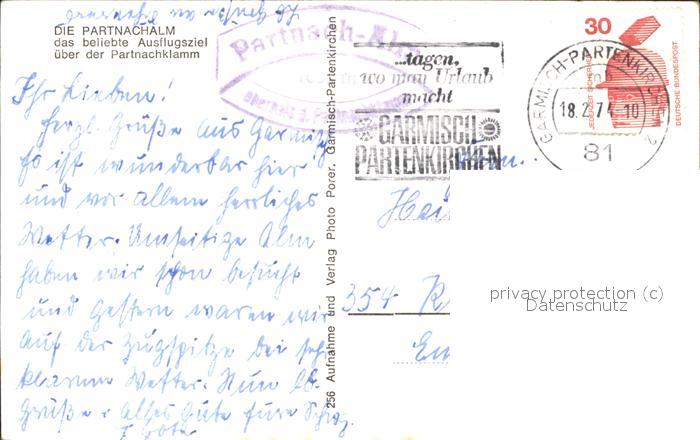 DIE PARTNACHALM
das beliebte Ausflugsziel
über der Partnachklamm
Ihr Lieben!
Herzl. Grüße aus Garmisch
Es ist wunderbar hier
und vor allem herrliches
Wetter. Umseitige Alm
haben wir schon besucht
und gestern waren wir
auf der Zugspitze bei sehr
klarem Wetter. Nun lb.
Grüße + alles Gute Eure
256 Aufnahme und Verlag Photo Porer, Garmisch-Partenkirchen
Partnach-Alm
...tagen,
wo man Urlaub
macht
GARMISCH
PARTENKIRCHEN
GARMISCH-PARTENKIRCHEN 2
mb
18.2.74.10
81
30
JEDERZEIT SICHERHEIT
DEUTSCHE BUNDESPOST
354
privacy protection (c)
Datenschutz